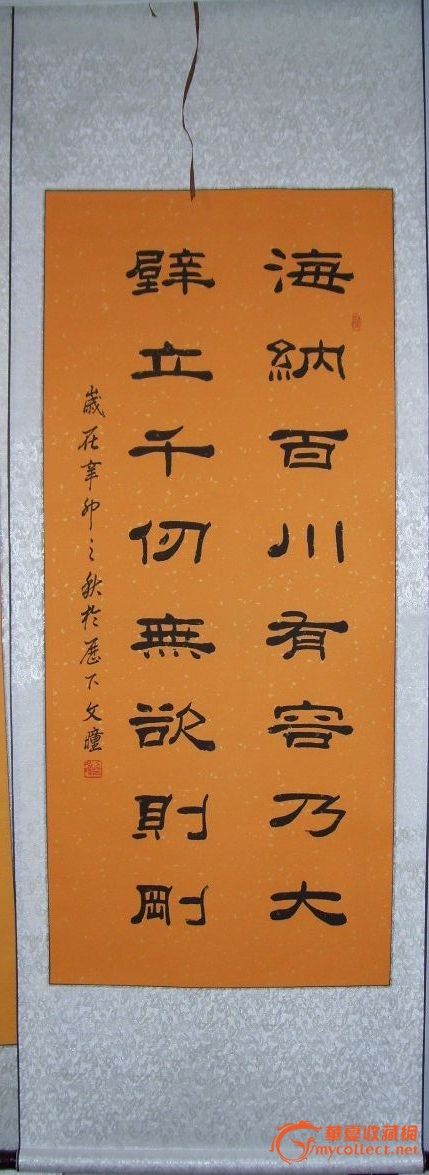 海納百川有容乃大
壁立千仞無欲則剛
歲在辛卯之秋於歷下文瞳
華夏收藏網
mycollect.net